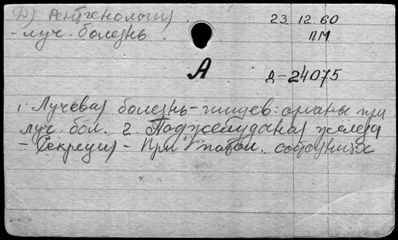 Д) Рентгенология 23.12.60
- луч. болезнь. ПМ
А Д-24075
1. Лучевая болезнь - пищев: органы при
луч. бол. 2. Поджелудочная железа
- Секреция - При патол. состояниях